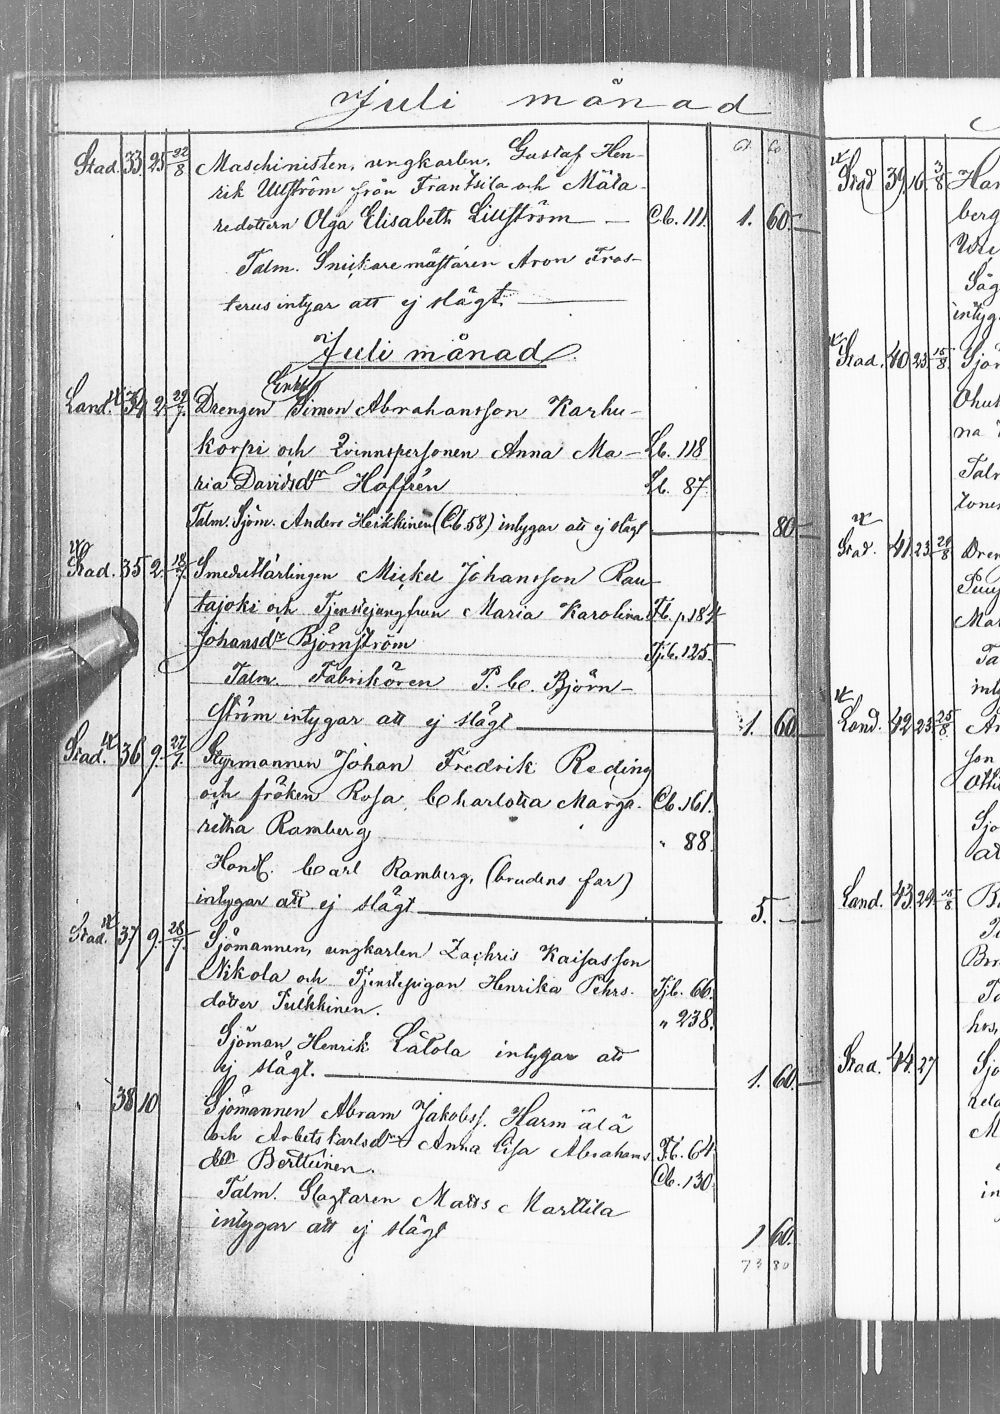 Juli månad
Stad. 33 25 22/8 Maschinisten, ungkarlen, Gustaf Hen-
rik Ullström från Frantsila och Måla-
redottern Olga Elisabeth Lillström — Cb. 111. 1. 60.
Talm. Snickaremästaren Aron Fros-
terus intygar att ej slägt.
Juli månad
Enkl.
Land. 34 2 29/7. Drengen Simon Abrahansson Karhu-
korpi och Qvinnspersonen Anna Ma- Lb. 118
ria Davidsdr Hoffrén Lb. 87.
Talm. Sjöm. Anders Heikkinen (Cb 58) intygar att ej slägt 80
Stad. 35 2. 18/7. Smedslärlingen Mickel Johansson Rau-
tajoki och Tjenstejungfrun Maria Karolina Fb. p. 184
Johansdr Björnström Tjb. 125.
Talm. Fabrikören P. C. Björn-
ström intygar att ej slägt 1. 60.
Stad. 36 9. 27/7. Styrmannen Johan Fredrik Reding
och fröken Rosa Charlotta Marga- Cb. 161.
retha Ramberg " 88.
Handl. Carl Ramberg, (brudens far)
intygar att ej slägt 5.
Stad. 37 9. 28/7. Sjömannen, ungkarlen Zachris Kaisasson
Nikola och Tjenstepigan Henrika Pehrs- Tjb. 66.
dotter Pulkkinen. " 238.
Sjöman Henrik Latola intygar att
ej slägt. 1. 60.
38 10 Sjömannen Abram Jakobss. Harmälä
och Arbetskarlsdr Anna Lisa Abrahams Fb. 64.
dtr Berttunen. Cb. 130
Talm. Slagtaren Matts Marttila
intygar att ej slägt 1 60.
73 80
Stad 39 16. 3/8 Han
berg
intyg
Stad. 40 23. 15/8. Sjöm
na
Talm
Stad. 41 23. 29/8 Dren
Mar
Ta
inty
Land. 42 23. 25/8 An
son
Otti
Sjö
att
Land. 43 24. 15/8
Stad. 44. 27 Sjö
in